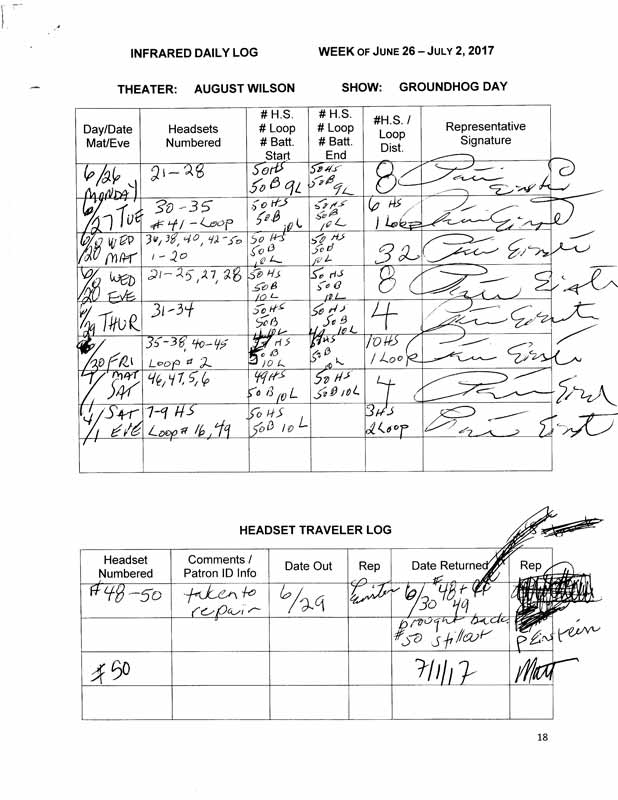 INFRARED DAILY LOG WEEK OF JUNE 26 – JULY 2, 2017
THEATER: AUGUST WILSON SHOW: GROUNDHOG DAY
Day/Date Mat/Eve | Headsets Numbered | # H.S. # Loop # Batt. Start | # H.S. # Loop # Batt. End | #H.S. / Loop Dist. | Representative Signature
6/26 MONDAY 21-28 50HS 50B 9L 50HS 50B 9L 8
6/27 TUE 30-35 #41-Loop 50HS 50B 10L 50HS 50B 10L 6 HS 1 Loop
WED MAT 36,38,40,42-50 1-20 50 HS 50B 10L 50 HS 50B 10L 32
WED EVE 21-25,27,28 50HS 50B 10L 50HS 50B 10L 8
29 THUR 31-34 50HS 50B 50HS 50B 10L 4
30 FRI 35-38, 40-45 Loop #2 HS 50B 10L 50B 10HS 1 Loop
MAT SAT 46,47,5,6 49HS 50B 10L 50 HS 50B 10L 4
7/1 SAT EVE 7-9 HS Loop# 16,49 50HS 50B 10L 3HS 2 Loop
HEADSET TRAVELER LOG
Headset Numbered | Comments / Patron ID Info | Date Out | Rep | Date Returned | Rep
#48-50 taken to repair 6/29 6/30 #48+ 49 brought back #50 still out PEinstein
#50 7/1/17 Matt
18